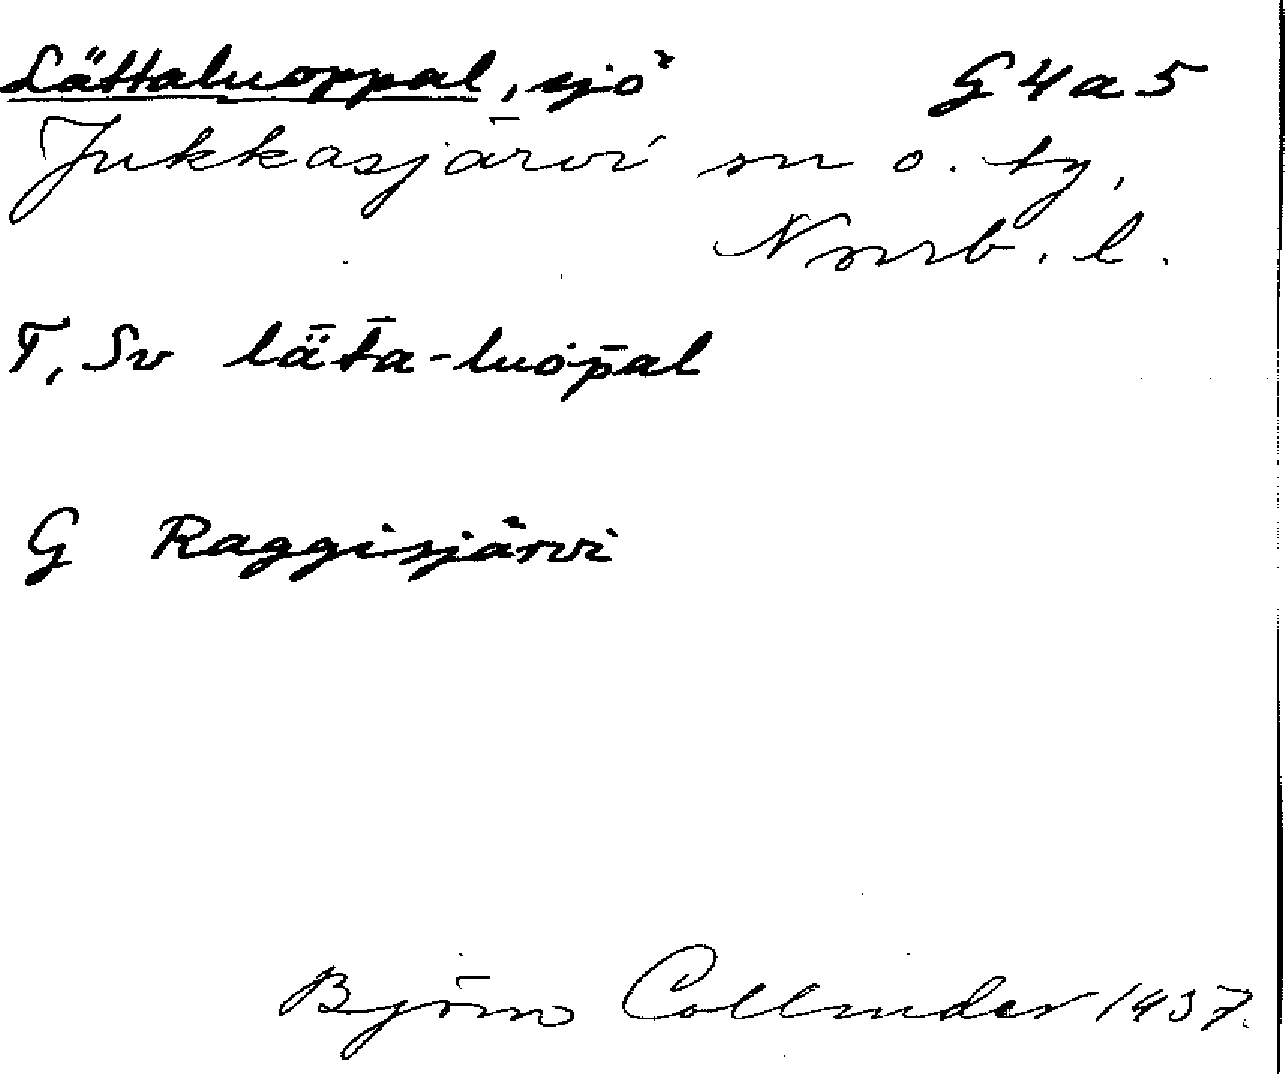 Lättaluoppal, sjö G4a5
Jukkasjärvi sn o. tg,
Nnrb. l.
T, Sv lǟt̄a-luóp̄al
G Raggisjärvi
Björn Collinder 1937.